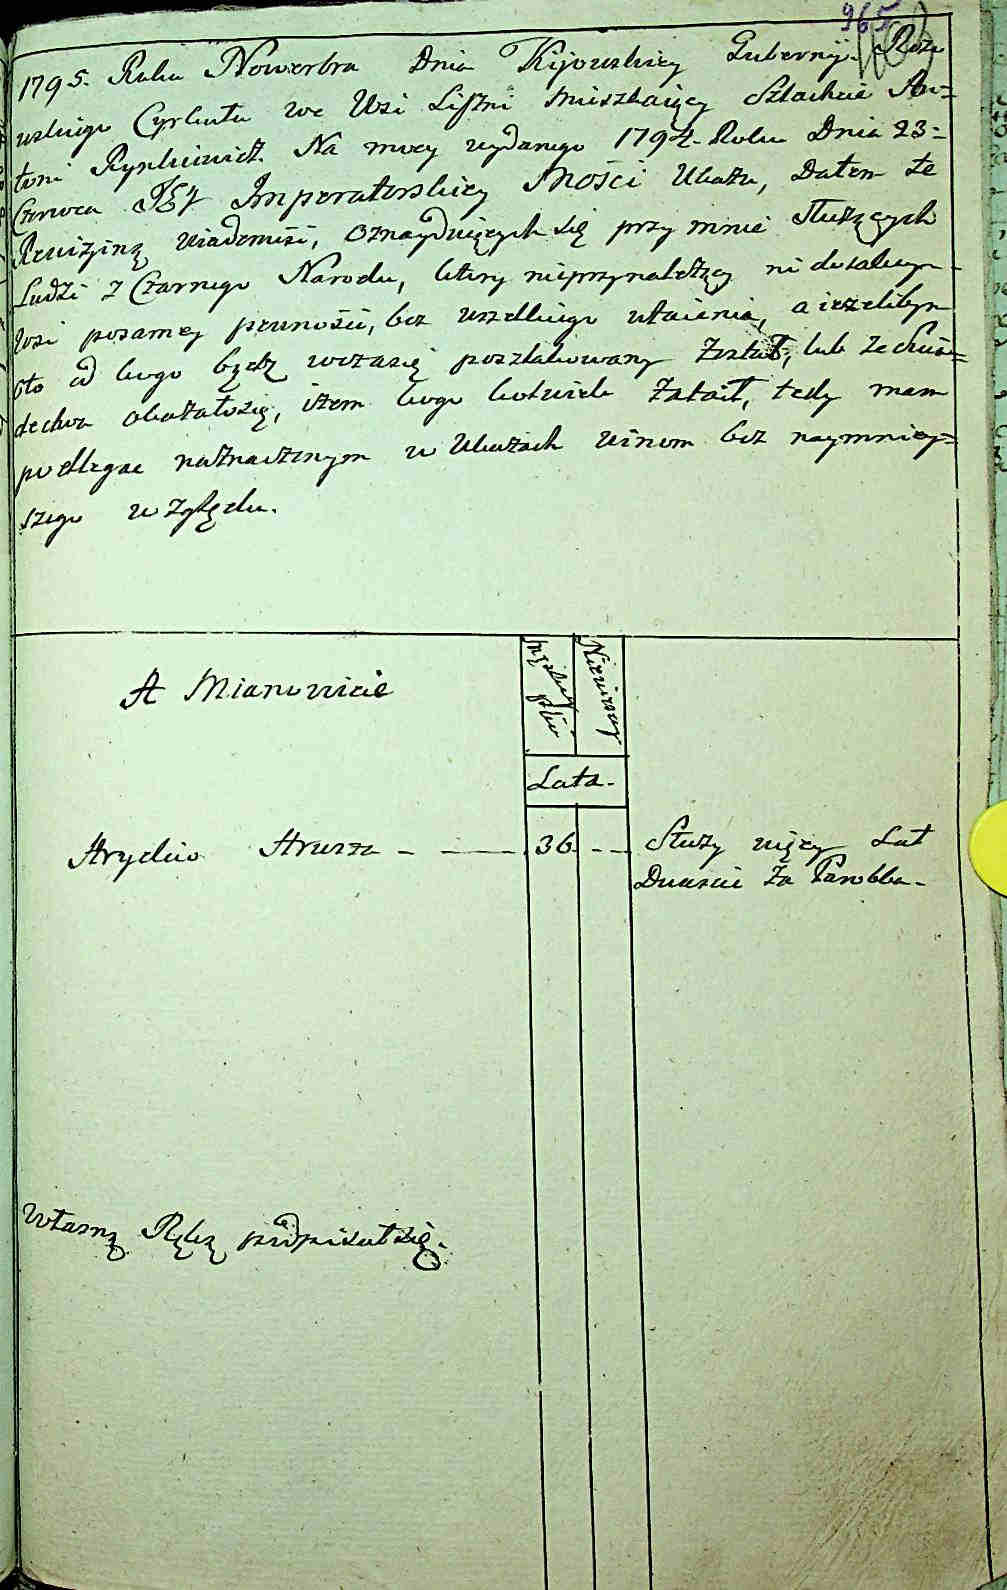 965
1795. Roku Nowembra Dnia Kijowskiey Gubernij. Ros
wskiego Cyrkułu we Wsi Listni Mieszkaiący Szlachcic An=
toni Ryszkiewicz. Na mocy wydanego 1794. Roku Dnia 23:
Czerwca Jey Imperatorskiey Mości Ukazu, Dałem te
Rewizijną wiadomość, oznayduiących się przy mnie służących
Ludzi z Czarnego Narodu, ktury nieprzynależy ni do
Wsi posamey pewności, bez wszelkiego utaienia, a ieżelibym
oto od kogo bądź wczasie poszlakowany został, lub ze
dectwa okazałosię, iżem kogo kolwiek zataił, tedy mam
podlegac naznaczonym w Ukazach winom bez naymniey=
szego względu.
A Mianowicie
Męzkiey płci
Niewiast
Lata.
Hrycko Hrusza - - 36 - - Służy więcy Lat
Dwascie za Parobka.
Własną Ręką podpisałsię.